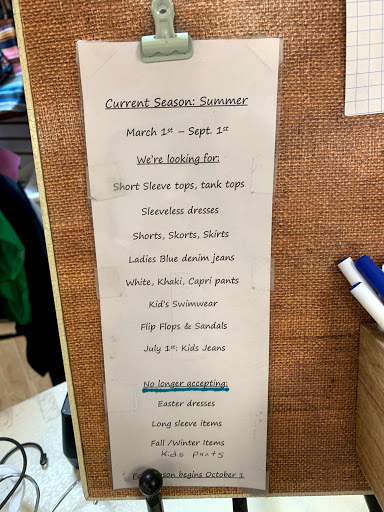 Current Season: Summer
March 1st – Sept. 1st
We're looking for:
Short Sleeve tops, tank tops
Sleeveless dresses
Shorts, Skorts, Skirts
Ladies Blue denim jeans
White, Khaki, Capri pants
Kid's Swimwear
Flip Flops & Sandals
July 1st: Kids Jeans
No longer accepting:
Easter dresses
Long sleeve items
Fall /Winter Items
Kids Pants
season begins October 1